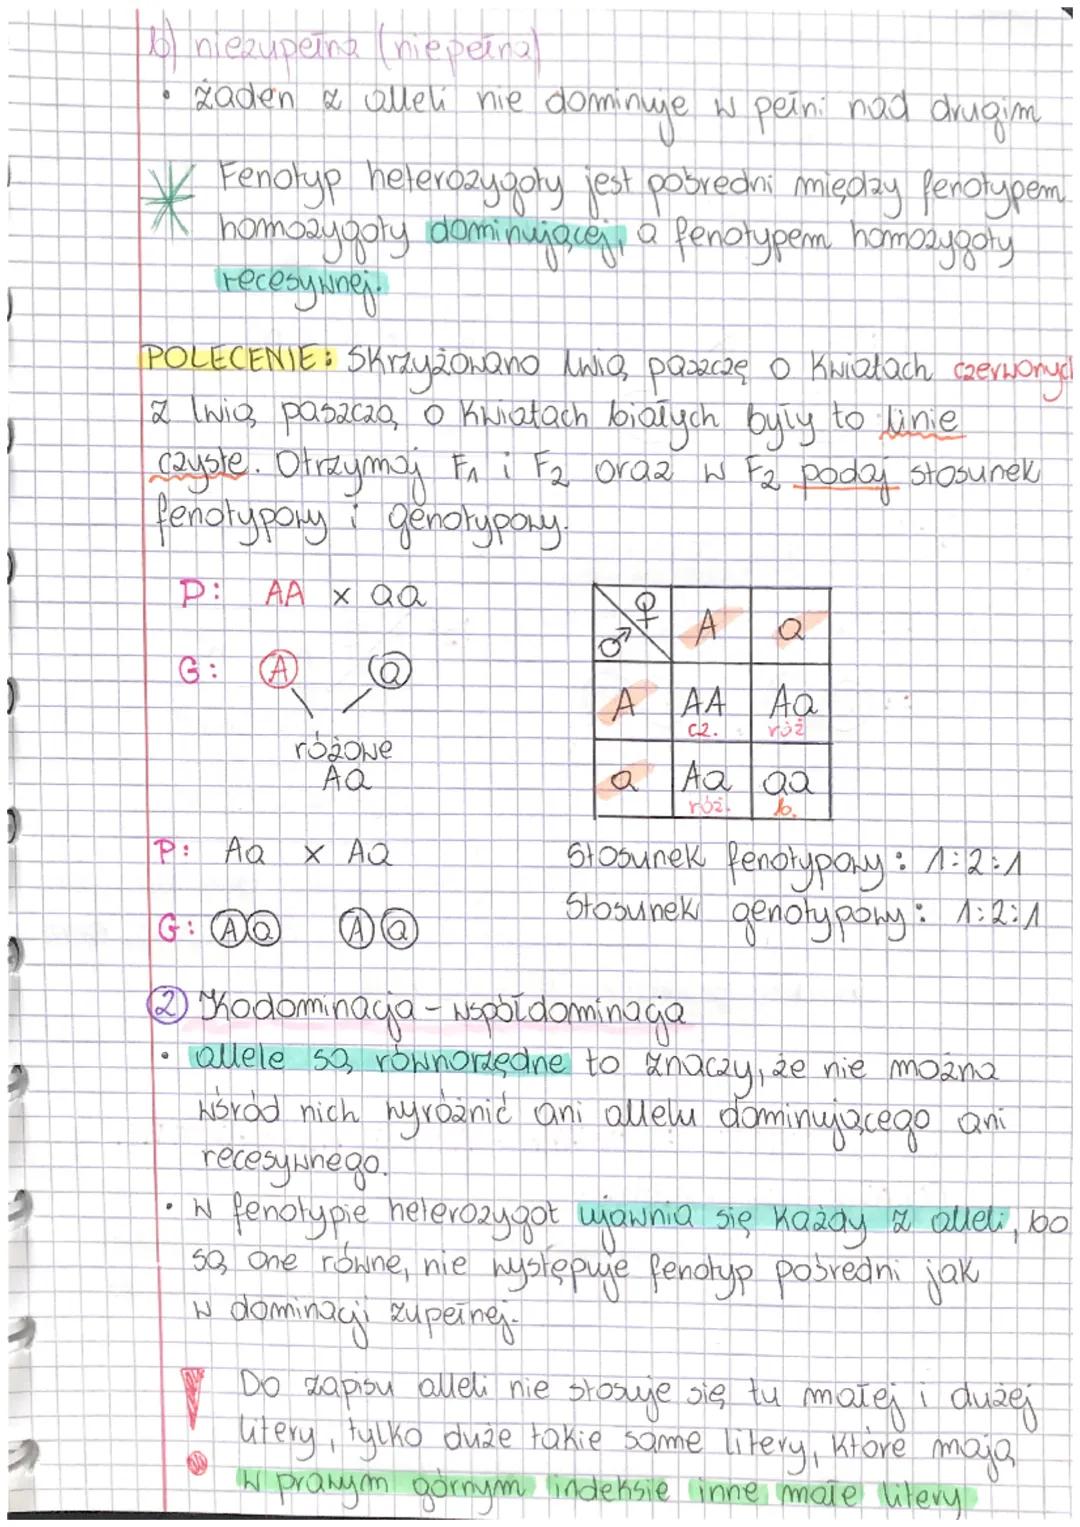 b) niezupełna (niepełna)
• żaden z alleli nie dominuje w pełni nad drugim
Fenotyp heterozygoty jest pośredni między fenotypem
homozygoty dominującej, a fenotypem homozygoty
recesywnej.
POLECENIE: Skrzyżowano lwią paszczę o kwiatach czerwonych
z lwią paszczą o kwiatach białych były to linie
czyste. Otrzymaj F1 i F2 oraz w F2 podaj stosunek
fenotypowy i genotypowy.
P: AA x aa
G: A a
różowe
Aa
♀ A a
♂
A AA Aa
cz. róż
a Aa aa
róż. b.
P: Aa x Aa
G: A a A a
Stosunek fenotypowy: 1:2:1
Stosunek genotypowy: 1:2:1
2 Kodominacja - współdominacja
• allele są równorzędne to znaczy, że nie można
wśród nich wyróżnić ani allelu dominującego ani
recesywnego.
• w fenotypie heterozygot ujawnia się każdy z alleli, bo
są one równe, nie występuje fenotyp pośredni jak
w dominacji zupełnej.
! Do zapisu alleli nie stosuje się tu małej i dużej
litery, tylko duże takie same litery, które mają
w prawym górnym indeksie inne małe litery